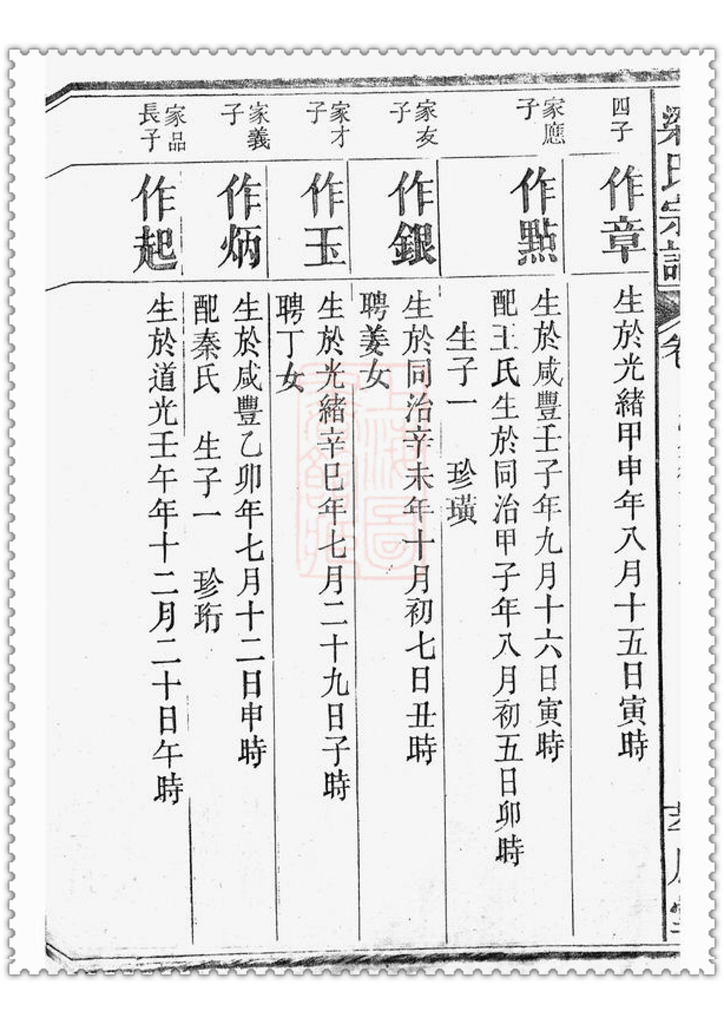 梁氏宗譜
卷
四子
作章
生於光緒甲申年八月十五日寅時
家應
子
作點
生於咸豐壬子年九月十六日寅時
配王氏生於同治甲子年八月初五日卯時
生子一 珍璜
家友
子
作銀
生於同治辛未年十月初七日丑時
聘姜女
家才
子
作玉
生於光緒辛巳年七月二十九日子時
聘丁女
家義
子
作炳
生於咸豐乙卯年七月十二日申時
配秦氏 生子一 珍珩
家品
長子
作起
生於道光壬午年十二月二十日午時